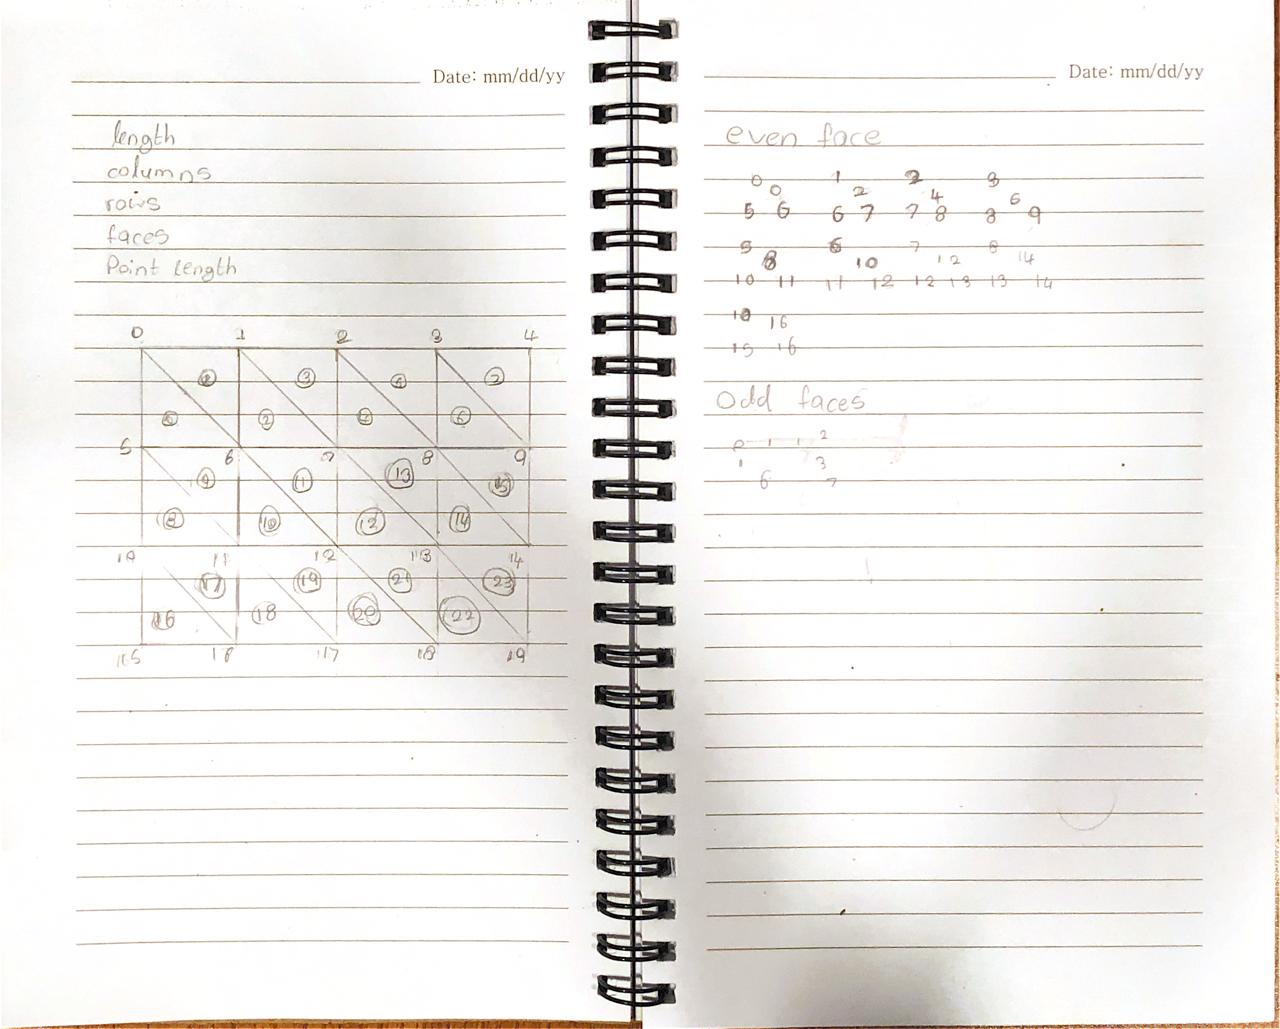 Date: mm/dd/yy
length
columns
rows
faces
Point length
0 1 2 3 4
3 7
2 6
5 6 7 8 9
9 11 13 15
8 10 12 14
10 11 12 13 14
17 19 21 23
16 18 20 22
15 16 17 18 19
Date: mm/dd/yy
even face
0 1 2 3
0 2 4 6
5 6 6 7 7 8 8 9
5 6 7 8
8 10 12 14
10 11 11 12 12 13 13 14
10 16
15 16
Odd faces
0 1 1 2
1 3
6 7